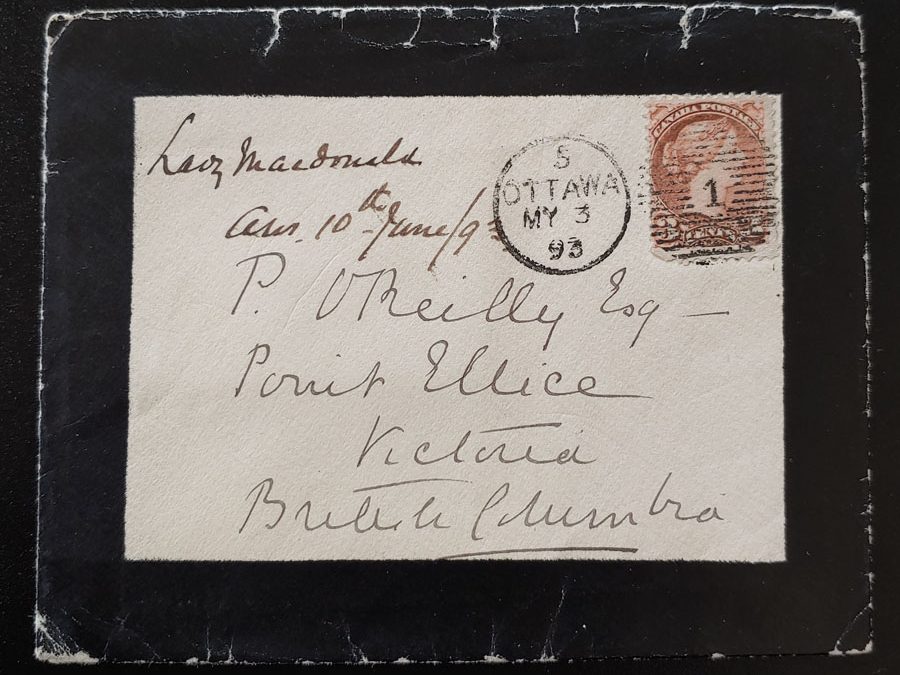 Lady Macdonald
ans. 10th June/93
S
OTTAWA
MY 3
93
CANADA POSTAGE
1
3 CENTS
P. O'Reilly Esq
Point Ellice
Victoria
British Columbia